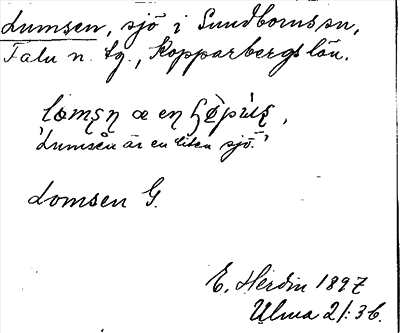 Lumsen, sjö i Sundborns sn,
Falu n. tg., Kopparbergs län.
'Lumsen är en liten sjö.'
Lomsen G.
E. Herdin 1897
Ulma 21:36.